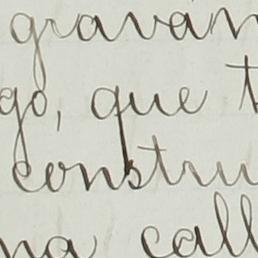 gravam
go, que t
constru
na call